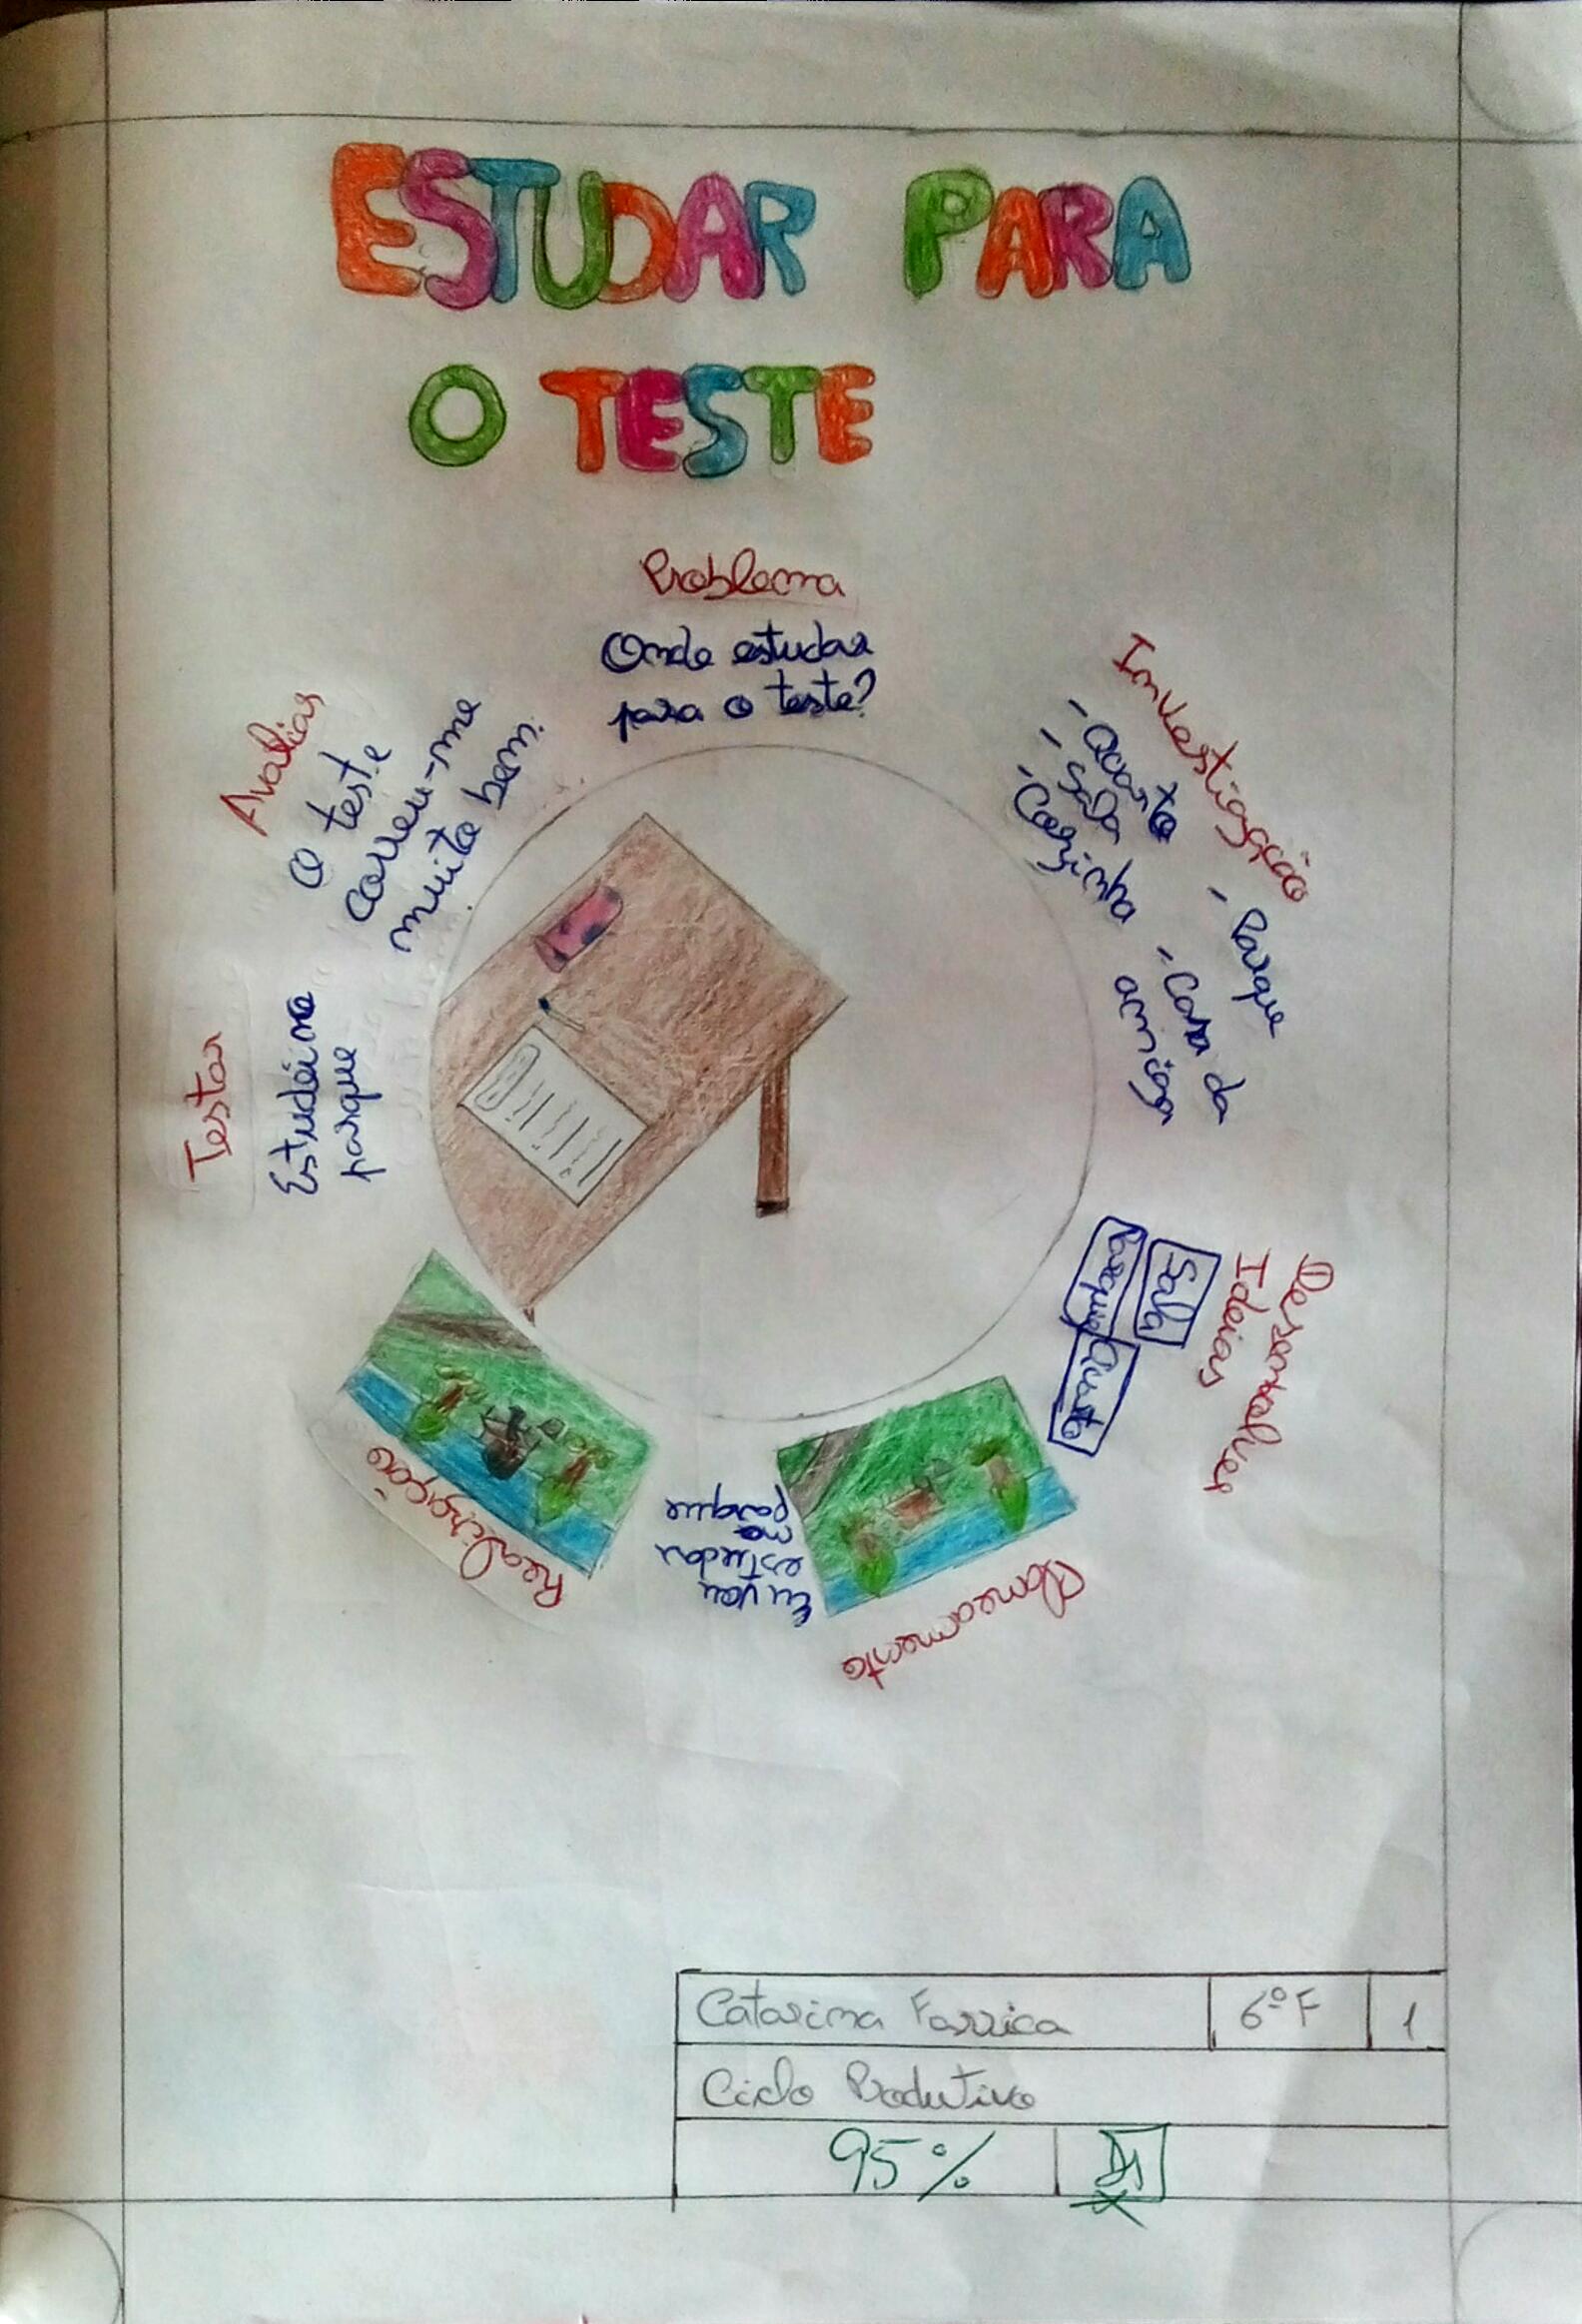 ESTUDAR PARA
O TESTE
Problema
Onde estudar
para o teste?
Investigação
- Quarto
- Sala
- Cozinha
- Parque
- Casa da
amiga
Desenvolver
Ideias
Sala
Parque
Quarto
Planeamento
Eu vou
estudar
no
parque
Realização
Testar
Estudei no
parque
Avaliar
O teste
correu-me
muito bem.
Catarina Farrica
6º F
1
Ciclo Produtivo
95%